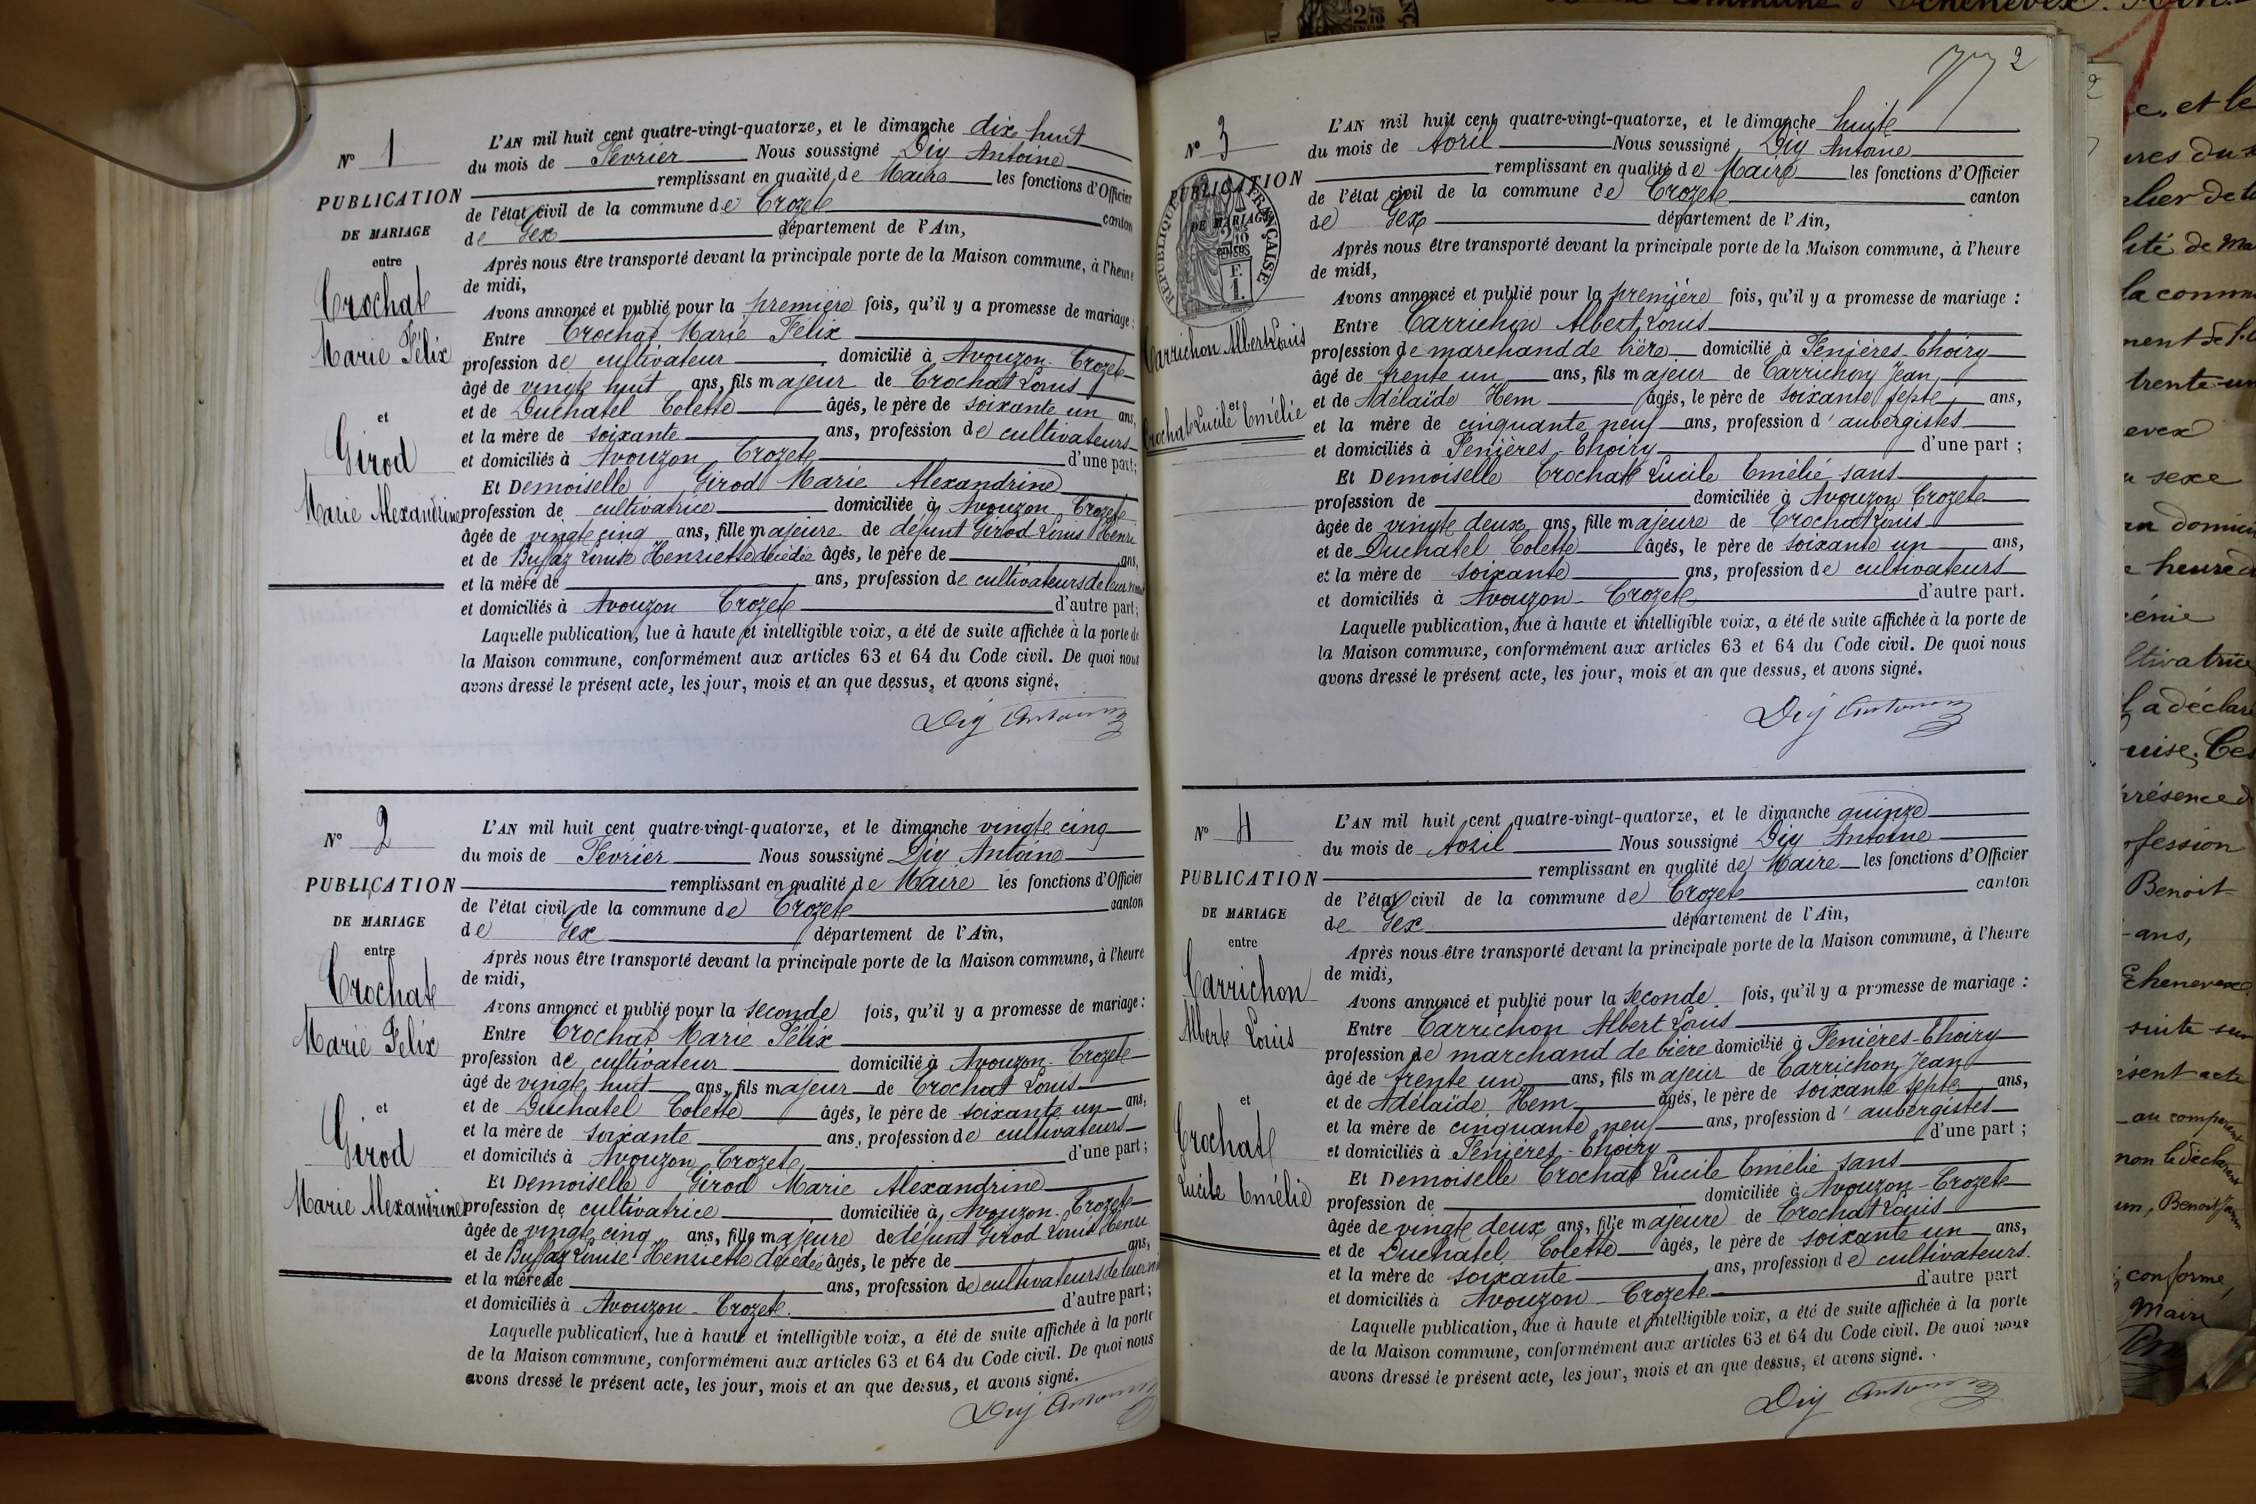 N° 1
PUBLICATION
DE MARIAGE
entre
Crochat
Marie Félix
et
Girod
Marie Alexandrine
L'AN mil huit cent quatre-vingt-quatorze, et le dimanche dix huit
du mois de Février Nous soussigné Dig Antoine
remplissant en qualité de Maire les fonctions d'Officier
de l'état civil de la commune de Crozet canton
de Gex département de l'Ain,
Après nous être transporté devant la principale porte de la Maison commune, à l'heure
de midi,
Avons annoncé et publié pour la première fois, qu'il y a promesse de mariage :
Entre Crochat Marie Félix
profession de cultivateur domicilié à Avouzon Crozet
âgé de vingt huit ans, fils majeur de Crochat Louis
et de Duchatel Colette âgés, le père de soixante un ans,
et la mère de soixante ans, profession de cultivateurs
et domiciliés à Avouzon Crozet d'une part;
Et Demoiselle Girod Marie Alexandrine
profession de cultivatrice domiciliée à Avouzon Crozet
âgée de vingt cinq ans, fille majeure de défunt Girod Louis Henri
et de Louise Henriette décédée âgés, le père de ans,
et la mère de ans, profession de cultivateurs de leur
et domiciliés à Avouzon Crozet d'autre part;
Laquelle publication, lue à haute et intelligible voix, a été de suite affichée à la porte de
la Maison commune, conformément aux articles 63 et 64 du Code civil. De quoi nous
avons dressé le présent acte, les jour, mois et an que dessus, et avons signé.
Dig Antoine
N° 2
PUBLICATION
DE MARIAGE
entre
Crochat
Marie Félix
et
Girod
Marie Alexandrine
L'AN mil huit cent quatre-vingt-quatorze, et le dimanche vingt cinq
du mois de Février Nous soussigné Dig Antoine
remplissant en qualité de Maire les fonctions d'Officier
de l'état civil de la commune de Crozet canton
de Gex département de l'Ain,
Après nous être transporté devant la principale porte de la Maison commune, à l'heure
de midi,
Avons annoncé et publié pour la seconde fois, qu'il y a promesse de mariage :
Entre Crochat Marie Félix
profession de cultivateur domicilié à Avouzon - Crozet
âgé de vingt huit ans, fils majeur de Crochat Louis
et de Duchatel Colette âgés, le père de soixante un ans,
et la mère de soixante ans, profession de cultivateurs
et domiciliés à Avouzon Crozet d'une part;
Et Demoiselle Girod Marie Alexandrine
profession de cultivatrice domiciliée à Avouzon Crozet
âgée de vingt cinq ans, fille majeure de défunt Girod Louis Henri
et de Louise Henriette décédée âgés, le père de ans,
et la mère de ans, profession de cultivateurs de leur
et domiciliés à Avouzon - Crozet. d'autre part;
Laquelle publication, lue à haute et intelligible voix, a été de suite affichée à la porte
de la Maison commune, conformément aux articles 63 et 64 du Code civil. De quoi nous
avons dressé le présent acte, les jour, mois et an que dessus, et avons signé.
Dig Antoine
2
N° 3
PUBLICATION
DE MARIAGE
RÉPUBLIQUE FRANÇAISE
Carrichon Albert Louis
et
Crochat Lucile Emélie
L'AN mil huit cent quatre-vingt-quatorze, et le dimanche huit
du mois de Avril Nous soussigné Dig Antoine
remplissant en qualité de Maire les fonctions d'Officier
de l'état civil de la commune de Crozet canton
de Gex département de l'Ain,
Après nous être transporté devant la principale porte de la Maison commune, à l'heure
de midi,
Avons annoncé et publié pour la première fois, qu'il y a promesse de mariage :
Entre Carrichon Albert Louis
profession de marchand de bière domicilié à Fenières - Thoiry
âgé de trente un ans, fils majeur de Carrichon Jean
et de Adélaïde Hem âgés, le père de soixante sept ans,
et la mère de cinquante neuf ans, profession d'aubergistes
et domiciliés à Fenières - Thoiry d'une part ;
Et Demoiselle Crochat Lucile Emélie sans
profession de domiciliée à Avouzon Crozet
âgée de vingt deux ans, fille majeure de Crochat Louis
et de Duchatel Colette âgés, le père de soixante un ans,
et la mère de soixante ans, profession de cultivateurs
et domiciliés à Avouzon - Crozet d'autre part.
Laquelle publication, lue à haute et intelligible voix, a été de suite affichée à la porte de
la Maison commune, conformément aux articles 63 et 64 du Code civil. De quoi nous
avons dressé le présent acte, les jour, mois et an que dessus, et avons signé.
Dig Antoine
N° 4
PUBLICATION
DE MARIAGE
entre
Carrichon
Albert Louis
et
Crochat
Lucile Emélie
L'AN mil huit cent quatre-vingt-quatorze, et le dimanche quinze
du mois de Avril Nous soussigné Dig Antoine
remplissant en qualité de Maire les fonctions d'Officier
de l'état civil de la commune de Crozet canton
de Gex département de l'Ain,
Après nous être transporté devant la principale porte de la Maison commune, à l'heure
de midi,
Avons annoncé et publié pour la seconde fois, qu'il y a promesse de mariage :
Entre Carrichon Albert Louis
profession de marchand de bière domicilié à Fenières - Thoiry
âgé de trente un ans, fils majeur de Carrichon Jean
et de Adélaïde Hem âgés, le père de soixante sept ans,
et la mère de cinquante neuf ans, profession d'aubergistes
et domiciliés à Fenières - Thoiry d'une part ;
Et Demoiselle Crochat Lucile Emélie sans
profession de domiciliée à Avouzon - Crozet
âgée de vingt deux ans, fille majeure de Crochat Louis
et de Duchatel Colette âgés, le père de soixante un ans,
et la mère de soixante ans, profession de cultivateurs.
et domiciliés à Avouzon Crozet d'autre part
Laquelle publication, lue à haute et intelligible voix, a été de suite affichée à la porte
de la Maison commune, conformément aux articles 63 et 64 du Code civil. De quoi nous
avons dressé le présent acte, les jour, mois et an que dessus, et avons signé.
Dig Antoine